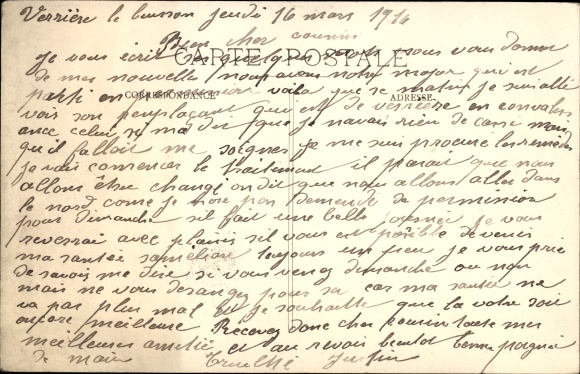 Verrière le buisson jeudi 16 mars 1916
Bien cher cousin
CARTE POSTALE
Je vous écrit ses quelques mots pour vous donner
de mes nouvelle nous avons notre major qui est
parti en permission voila que se matin je suis allé
CORRESPONDANCE
ADRESSE
voir son remplaçant qui est de verrière en convalers
avec celui si ma dit que je navais rien de cassé mais
qu'il falloit me soigner je me suis procuré les remèdes
je vais comencer le traitement il parait que nous
allons être changé on dit que nous allons aller dans
le nord come je nore pas demandé de permission
pour dimanche sil fait une belle journée je vous
reverrai avec plaisir sil vous est posible de venir
ma santée samélior toujours un peu je vous prie
de savoir me dire si vous venez dimanche ou non
mais ne vous derangez pour sa car ma santé ne
va pas plus mal et je souhaitte que la votre soit
encore meilleuse Recevez donc cher cousin toute mes
meilleures amitié et au revoir bientot bonne poignée
de main Justin